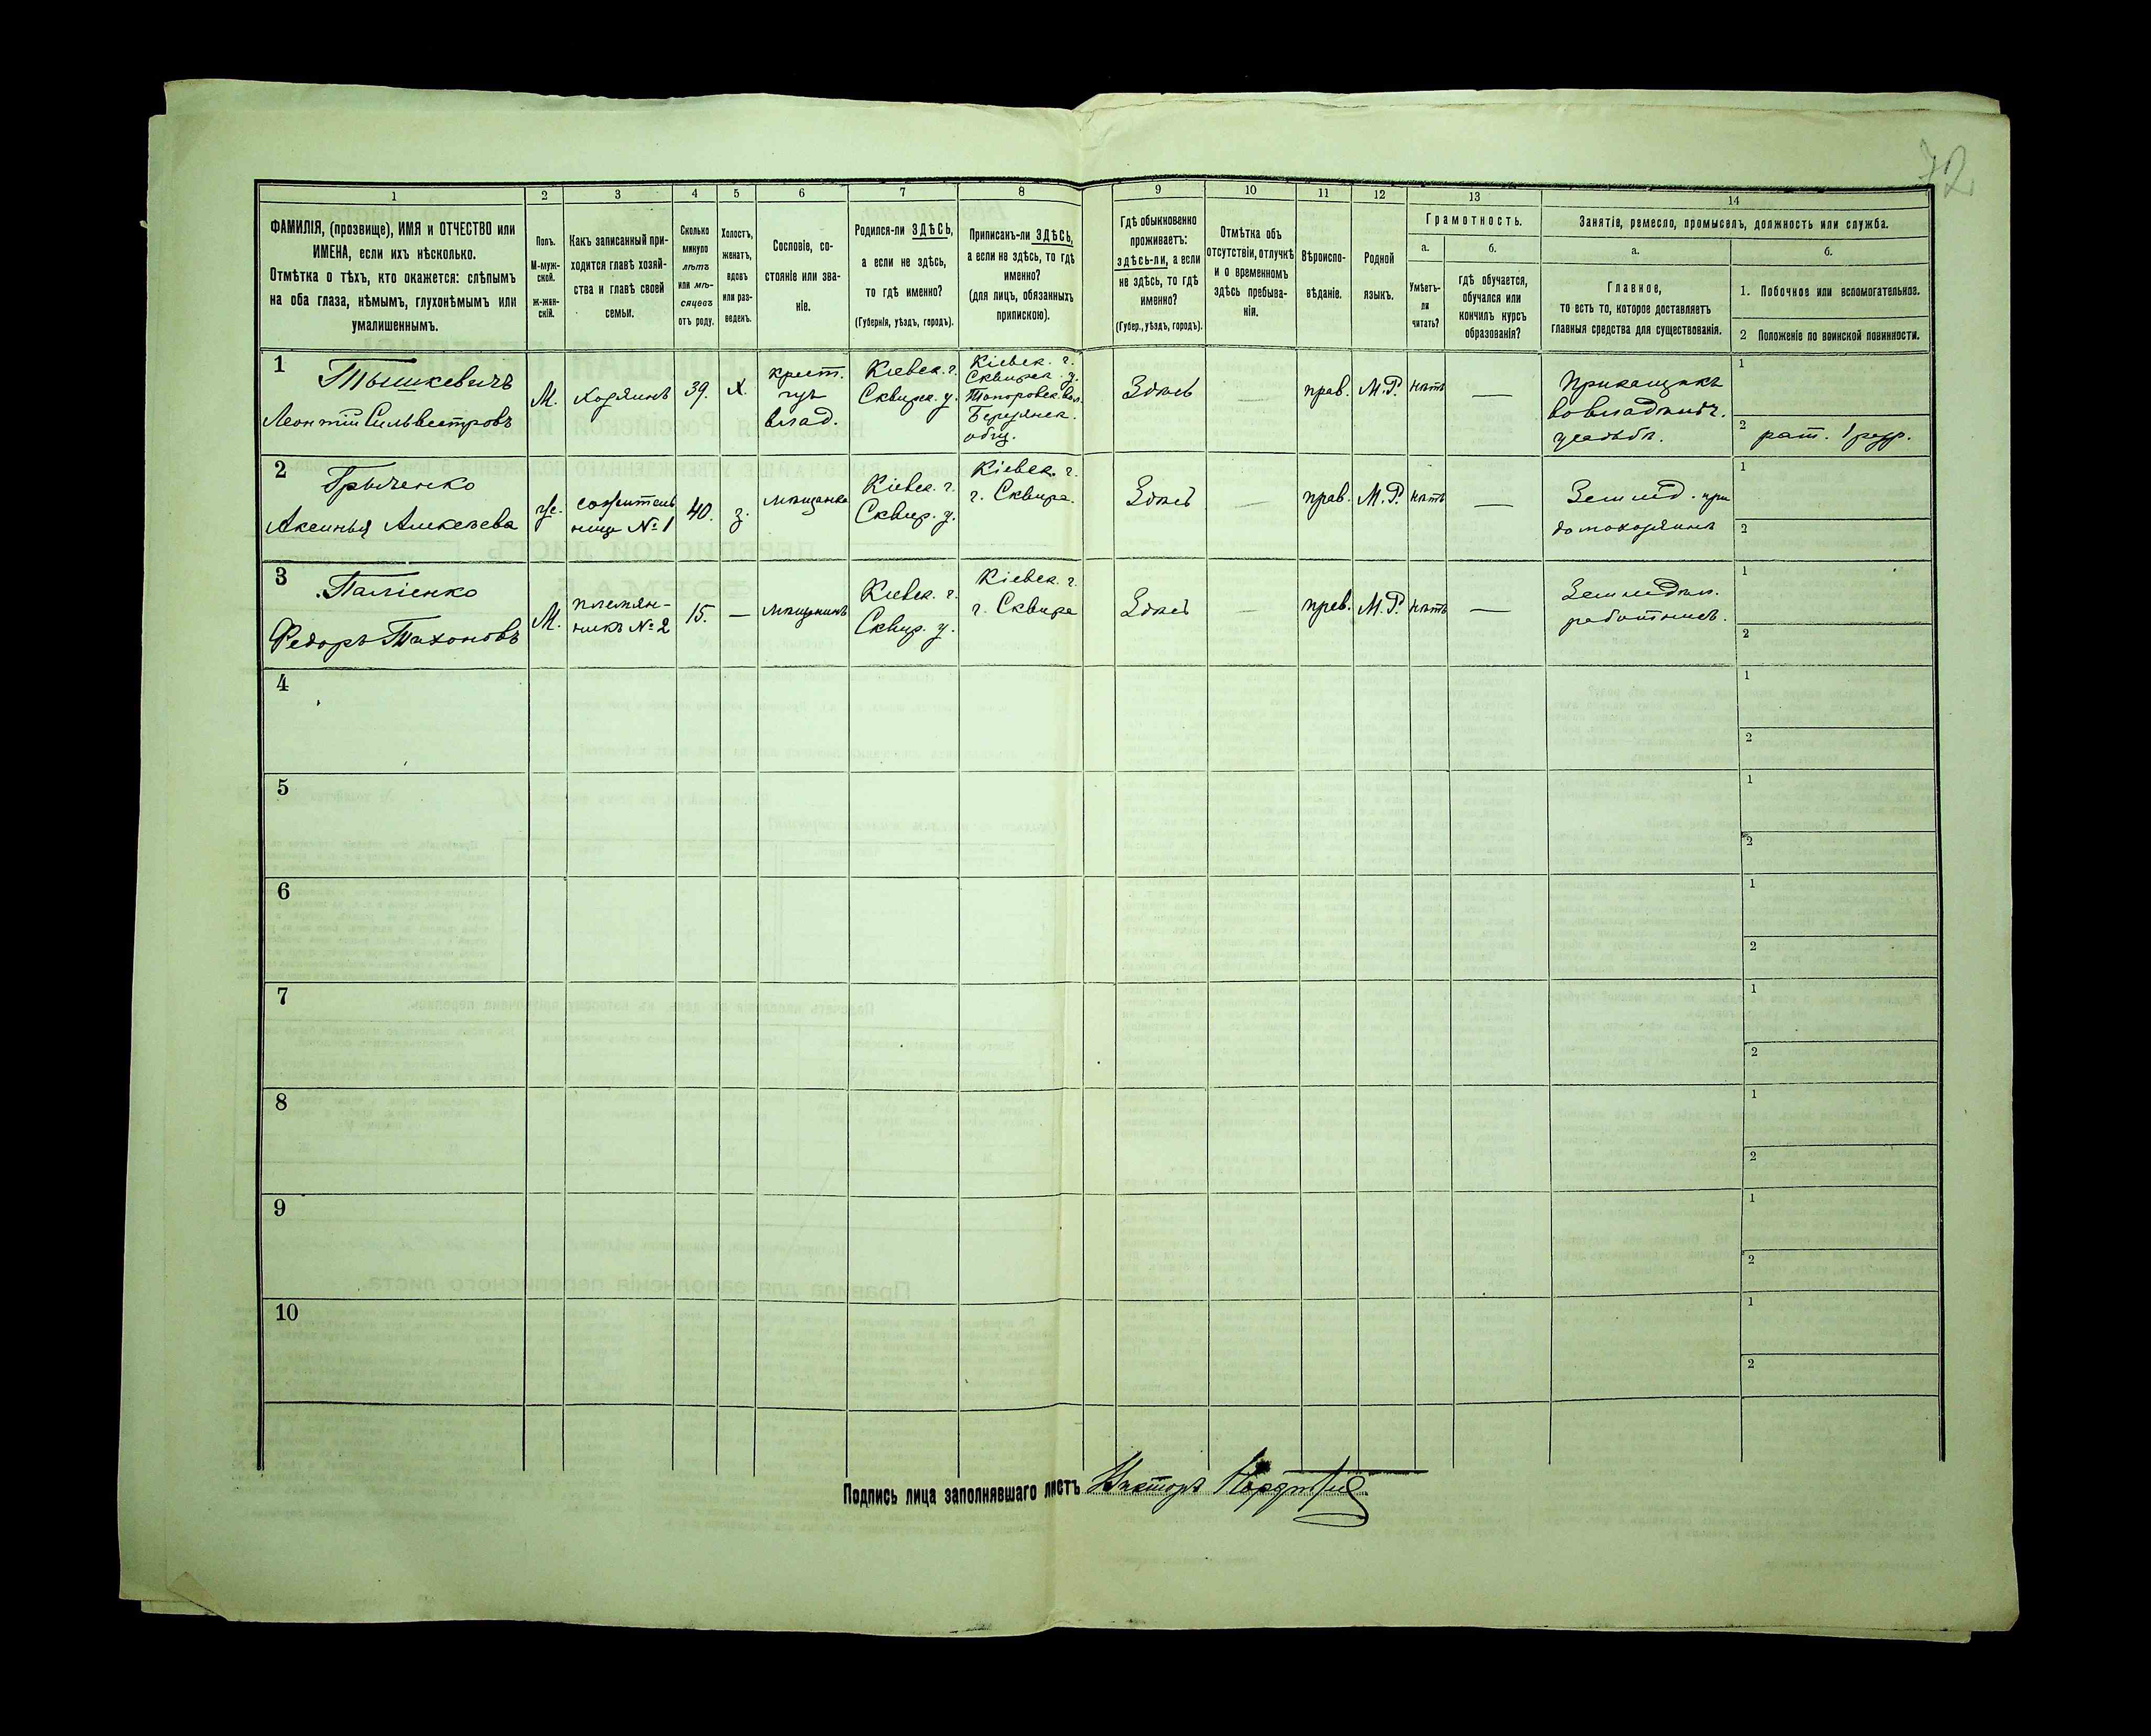 72
1 2 3 4 5 6 7 8 9 10 11 12 13 14
ФАМИЛІЯ, (прозвище), ИМЯ и ОТЧЕСТВО или
ИМЕНА, если ихъ нѣсколько.
Отмѣтка о тѣхъ, кто окажется: слѣпымъ
на оба глаза, нѣмымъ, глухонѣмымъ или
умалишеннымъ.
Полъ.
М-муж-
ской.
ж-жен-
скій.
Какъ записанный при-
ходится главѣ хозяй-
ства и главѣ своей
семьи.
Сколько
минуло
лѣтъ
или мѣ-
сяцевъ
отъ роду.
Холостъ,
женатъ,
вдовъ
или раз-
веденъ.
Сословіе, со-
стояніе или зва-
ніе.
Родился-ли ЗДѢСЬ,
а если не здѣсь,
то гдѣ именно?
(Губернія, уѣздъ, городъ).
Приписанъ-ли ЗДѢСЬ,
а если не здѣсь, то гдѣ
именно?
(для лицъ, обязанныхъ
припискою).
Гдѣ обыкновенно
проживаетъ:
здѣсь-ли, а если
не здѣсь, то гдѣ
именно?
(Губер., уѣздъ, городъ).
Отмѣтка объ
отсутствіи, отлучкѣ
и о временномъ
здѣсь пребыва-
ніи.
Вѣроиспо-
вѣданіе.
Родной
языкъ.
Грамотность.
а.
Умѣетъ-
ли
читать?
б.
гдѣ обучается,
обучался или
кончилъ курсъ
образованія?
Занятіе, ремесло, промыселъ, должность или служба.
а.
Главное,
то есть то, которое доставляетъ
главныя средства для существованія.
б.
1. Побочное или вспомогательное.
2 Положеніе по воинской повинности.
1
Тышкевичъ
Леонтій Сильвестровъ
М.
хозяинъ
39.
х.
крест.
изъ
влад.
Кіевск. г.
Сквирск. у.
Кіевск. г.
Сквирск. у.
Топоровск. вол.
Березянск.
общ.
Здѣсь
—
прав.
М.Р.
нѣтъ
—
Прикащикъ
во владѣльч.
усадьбѣ.
1
2
рат. 1 разр.
2
Грыченко
Аксинья Алексѣева
ж.
сожитель-
ница № 1
40.
з.
мѣщанка
Кіевск. г.
Сквир. у.
Кіевск. г.
г. Сквира.
Здѣсь
—
прав.
М.Р.
нѣтъ
—
Землед. при
домохозяинѣ
1
2
3
Паліенко
Федоръ Тихоновъ
М.
племян-
никъ № 2
15.
—
мѣщанинъ
Кіевск. г.
Сквир. у.
Кіевск. г.
г. Сквира
Здѣсь
—
прав.
М.Р.
нѣтъ
—
Земледѣл.
работникъ.
1
2
4
1
2
5
1
2
6
1
2
7
1
2
8
1
2
9
1
2
10
1
2
Подпись лица заполнявшаго листъ